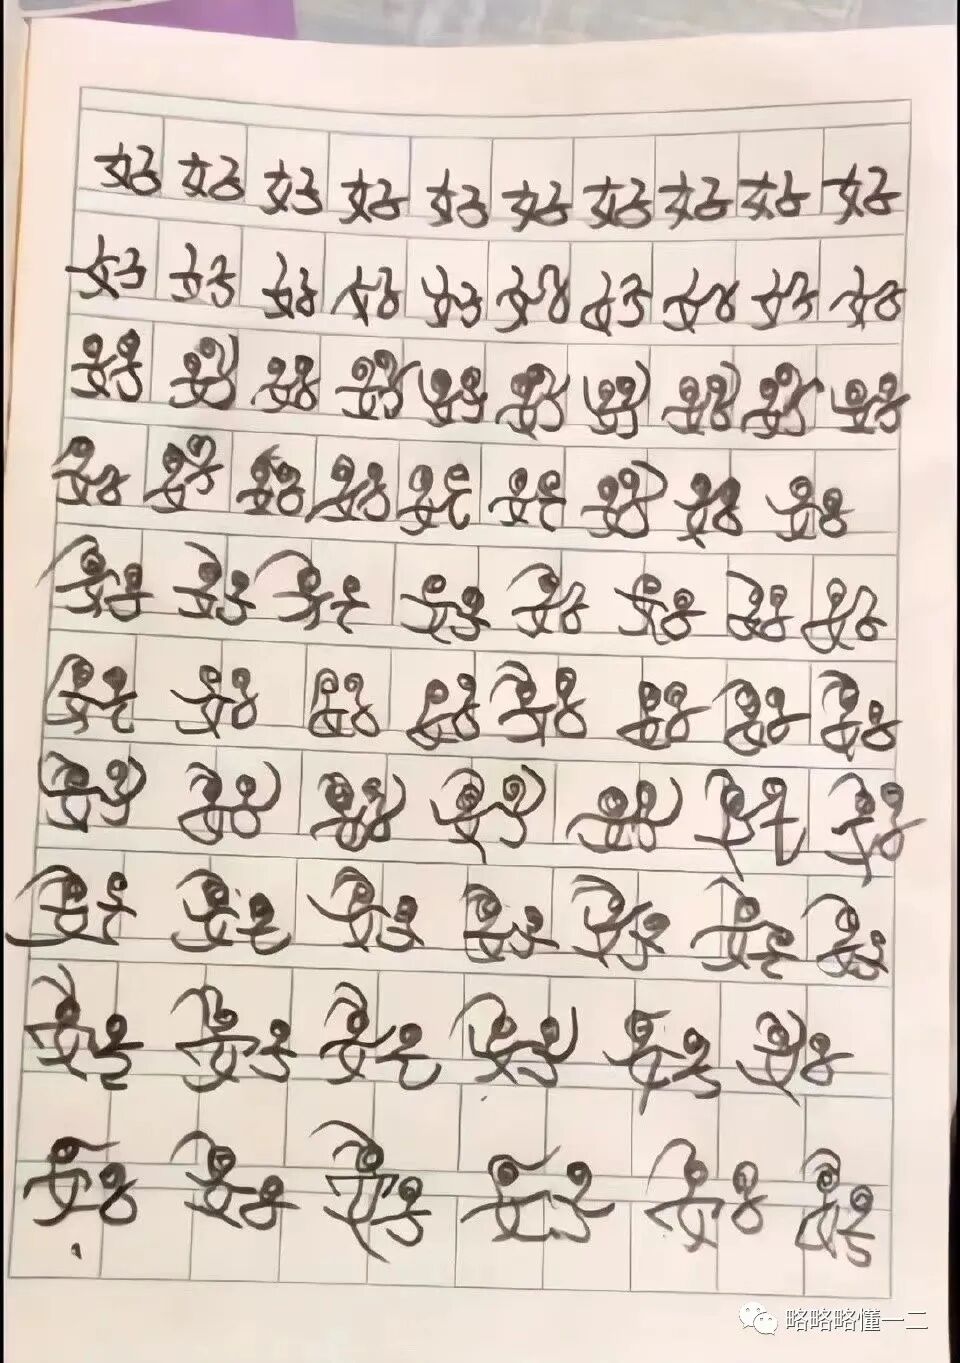 好好好好好好好好好好
好好好好好好好好好好
好好好好好好好好好好
好好好好好好好好好
好好好好好好好好
好好好好好好好好
好好好好好好好
好好好好好好好
好好好好好好
好好好好好好
略略略懂一二